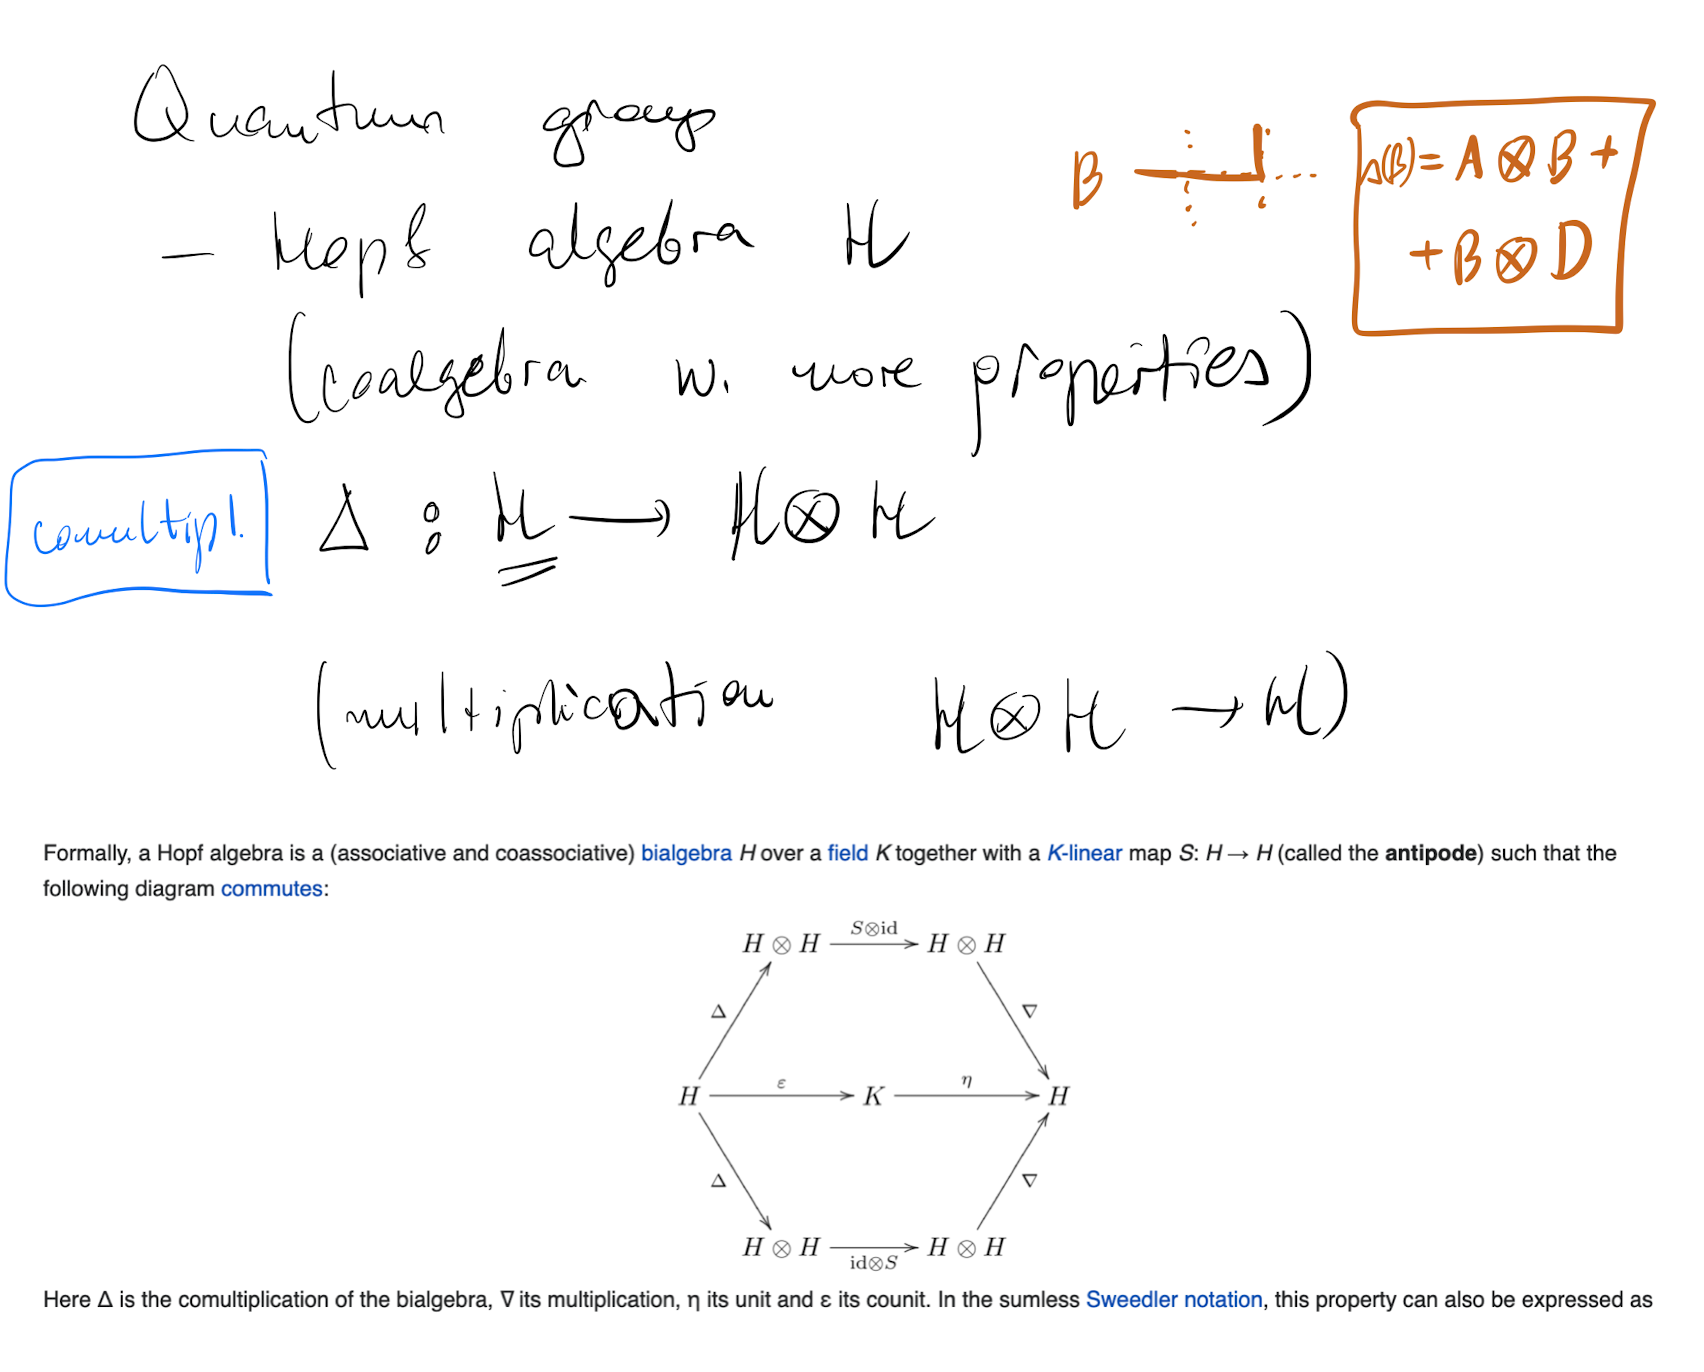 Quantum group
B
Δ(B) = A ⊗ B +
+ B ⊗ D
– Hopf algebra H
(coalgebra w. more properties)
comultipl.
Δ : H → H ⊗ H
(multiplication H ⊗ H → H)
Formally, a Hopf algebra is a (associative and coassociative) bialgebra H over a field K together with a K-linear map S: H → H (called the antipode) such that the
following diagram commutes:
H ⊗ H S⊗id H ⊗ H
Δ ∇
H ε K η H
Δ ∇
H ⊗ H id⊗S H ⊗ H
Here Δ is the comultiplication of the bialgebra, ∇ its multiplication, η its unit and ε its counit. In the sumless Sweedler notation, this property can also be expressed as